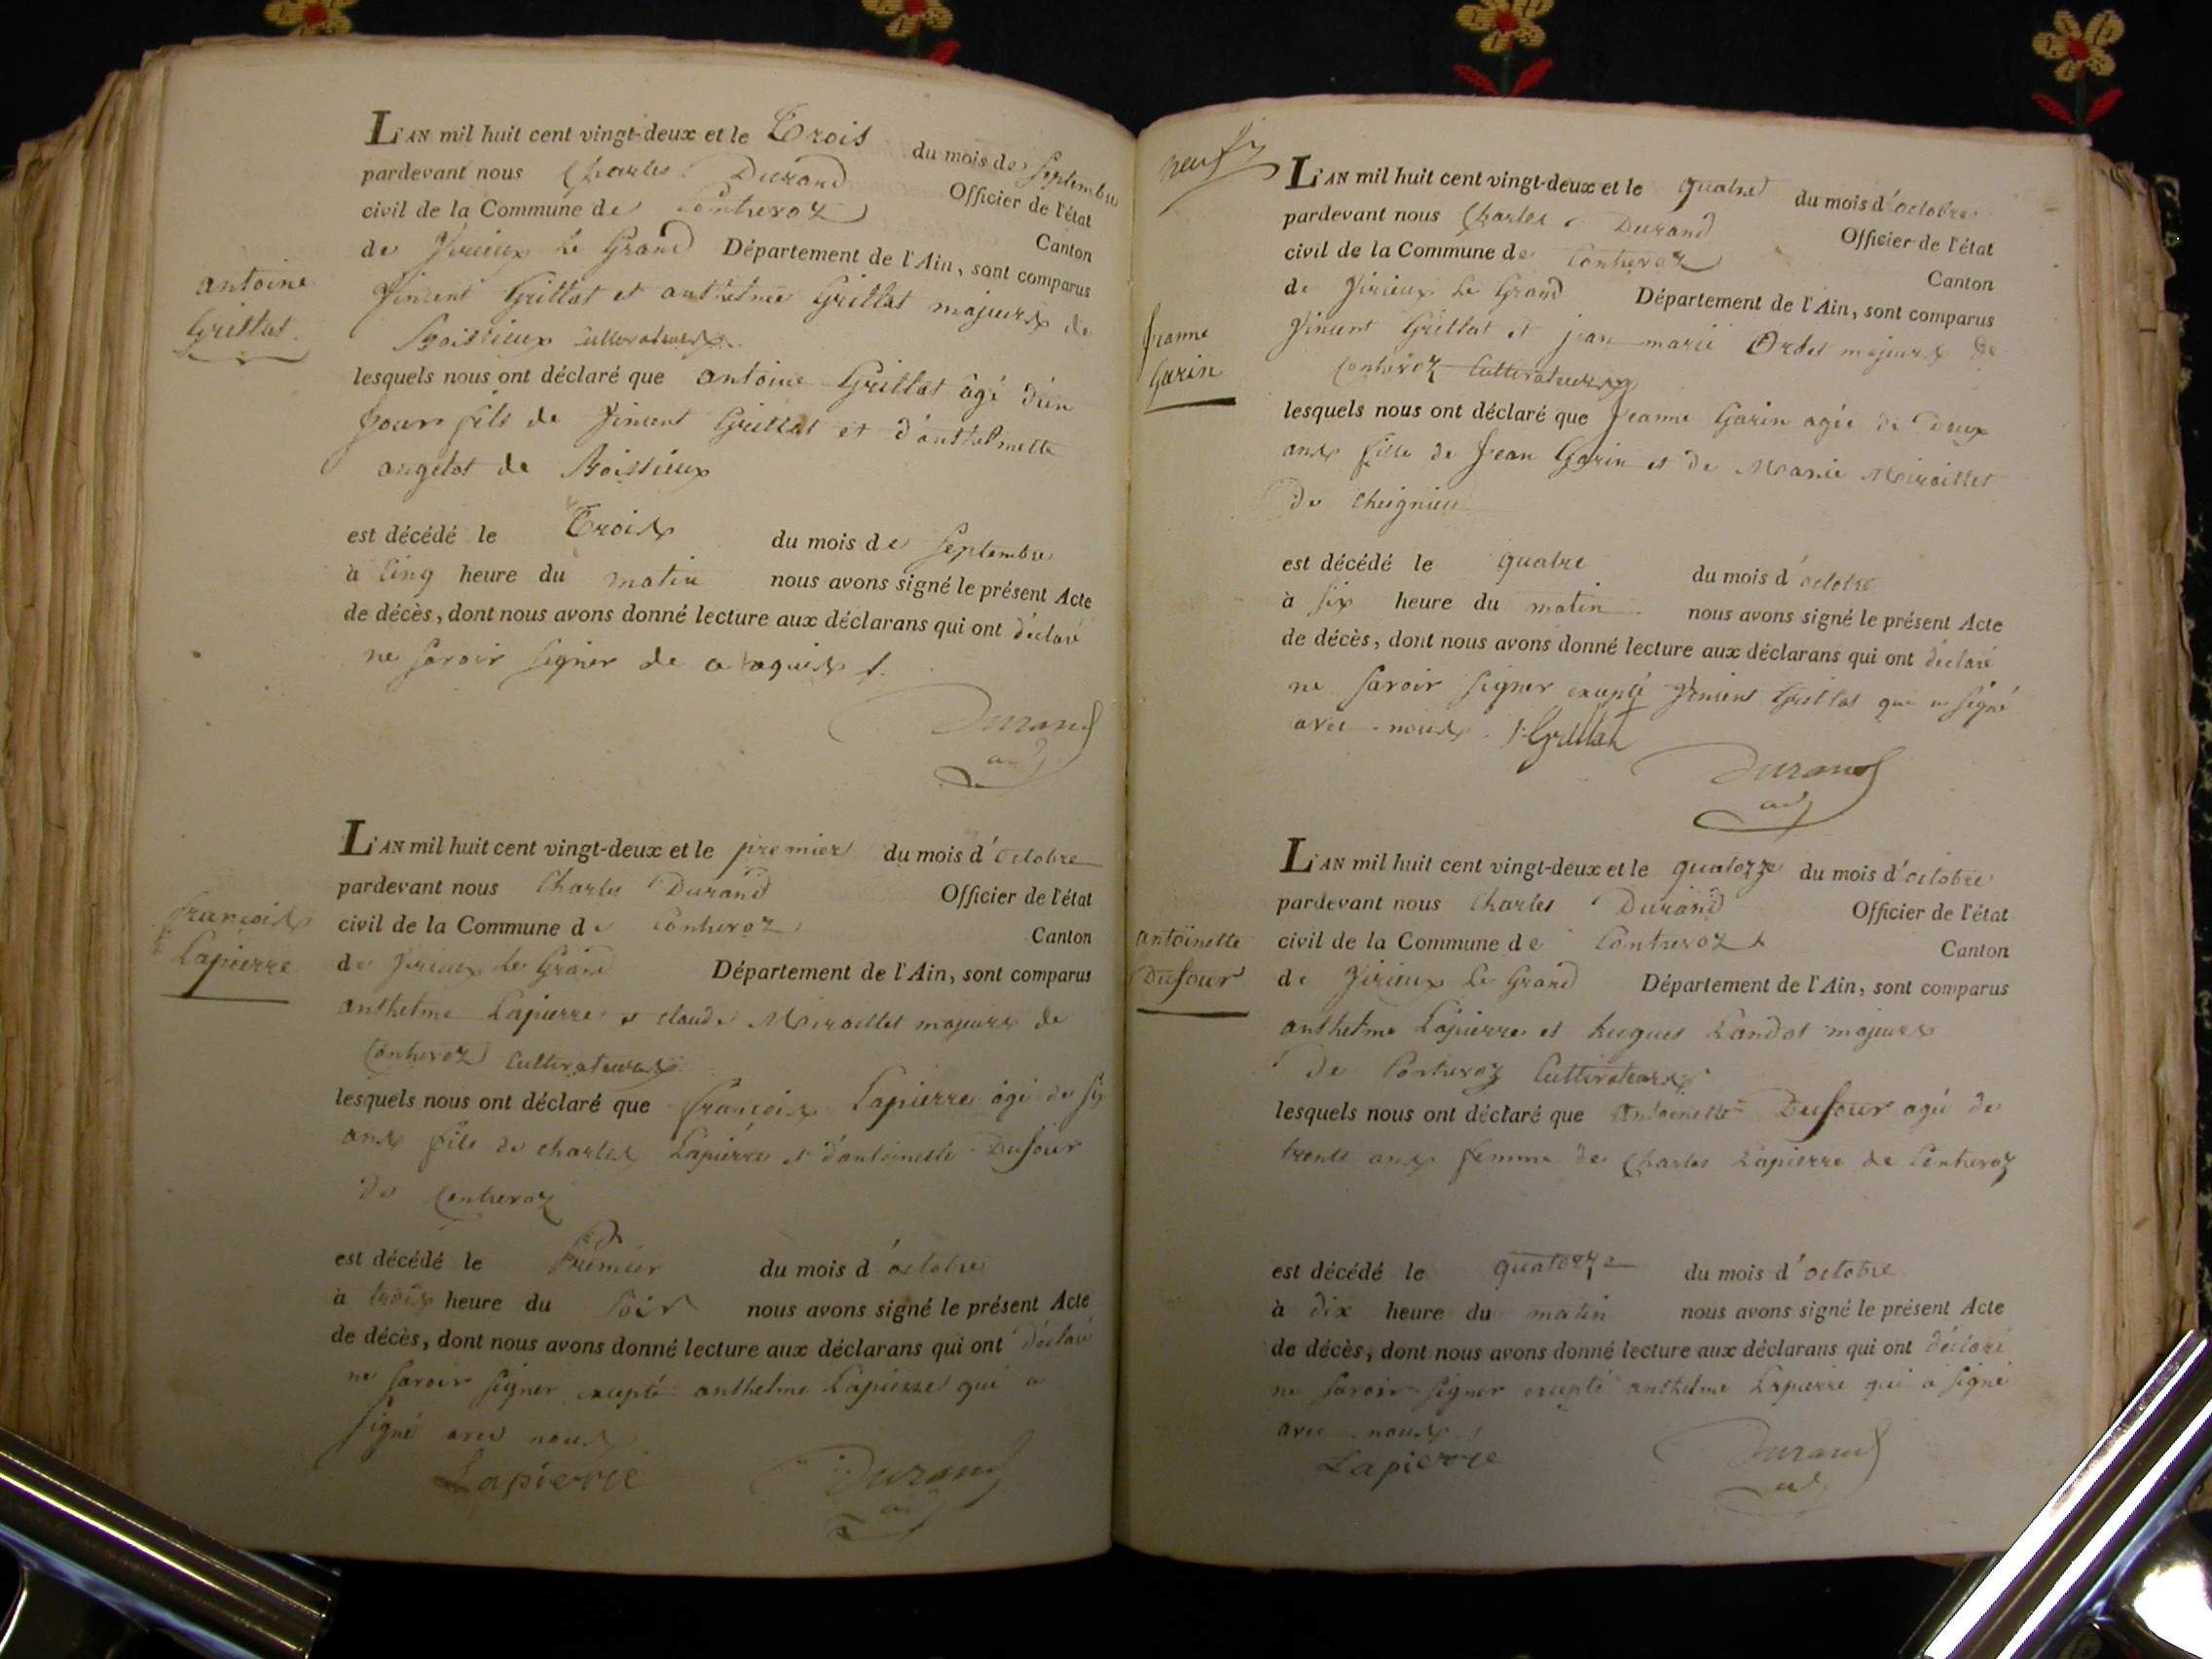 L'AN mil huit cent vingt-deux et le Trois du mois de Septembre
pardevant nous Charles Durand Officier de l'état
civil de la Commune de Contrevoz Canton
de Virieux Le Grand Département de l'Ain, sont comparus
antoine
Grillat
Vincent Grillat et anthelme Grillat majeurs de
Boissieux Cultivateurs
lesquels nous ont déclaré que antoine Grillat âgé d'un
jour fils de Vincent Grillat et d'anthelmette
angelot de Boissieux
est décédé le Trois du mois de Septembre
à Cinq heure du matin nous avons signé le présent Acte
de décès, dont nous avons donné lecture aux déclarans qui ont déclaré
ne Savoir Signer de ce
Durand
adj
L'AN mil huit cent vingt-deux et le premier du mois d'octobre
pardevant nous Charles Durand Officier de l'état
civil de la Commune de Contrevoz Canton
de Virieux Le Grand Département de l'Ain, sont comparus
françois
Lapierre
anthelme Lapierre et claude Miraillet majeurs de
Contrevoz Cultivateurs
lesquels nous ont déclaré que françois Lapierre âgé de six
ans fils de charles Lapierre et d'antoinette Dufour
de Contrevoz
est décédé le Premier du mois d'octobre
à trois heure du Soir nous avons signé le présent Acte
de décès, dont nous avons donné lecture aux déclarans qui ont déclaré
ne Savoir Signer excepté anthelme Lapierre qui a
Signé avec nous
Lapierre Durand
adj
neuf
L'AN mil huit cent vingt-deux et le quatre du mois d'octobre
pardevant nous Charles Durand Officier de l'état
civil de la Commune de Contrevoz Canton
de Virieux Le Grand Département de l'Ain, sont comparus
Jeanne
Garin
Vincent Grillat et jean marie Ordet majeurs de
Contrevoz Cultivateurs
lesquels nous ont déclaré que Jeanne Garin agée de Deux
ans fille de Jean Garin et de Marie Miraillet
de Cheignieu
est décédé le quatre du mois d'octobre
à Six heure du matin nous avons signé le présent Acte
de décès, dont nous avons donné lecture aux déclarans qui ont déclaré
ne Savoir Signer excepté Vincent Grillat qui a Signé
avec nous. V Grillat
Durand
adj
L'AN mil huit cent vingt-deux et le quatorze du mois d'octobre
pardevant nous Charles Durand Officier de l'état
civil de la Commune de Contrevoz Canton
de Virieux Le Grand Département de l'Ain, sont comparus
antoinette
Dufour
anthelme Lapierre et hugues Landot majeurs
de Contrevoz Cultivateurs
lesquels nous ont déclaré que antoinette Dufour agée de
trente ans femme de Charles Lapierre de Contrevoz
est décédé le quatorze du mois d'octobre
à dix heure du matin nous avons signé le présent Acte
de décès, dont nous avons donné lecture aux déclarans qui ont déclaré
ne Savoir Signer excepté anthelme Lapierre qui a Signé
avec nous
Lapierre Durand
adj